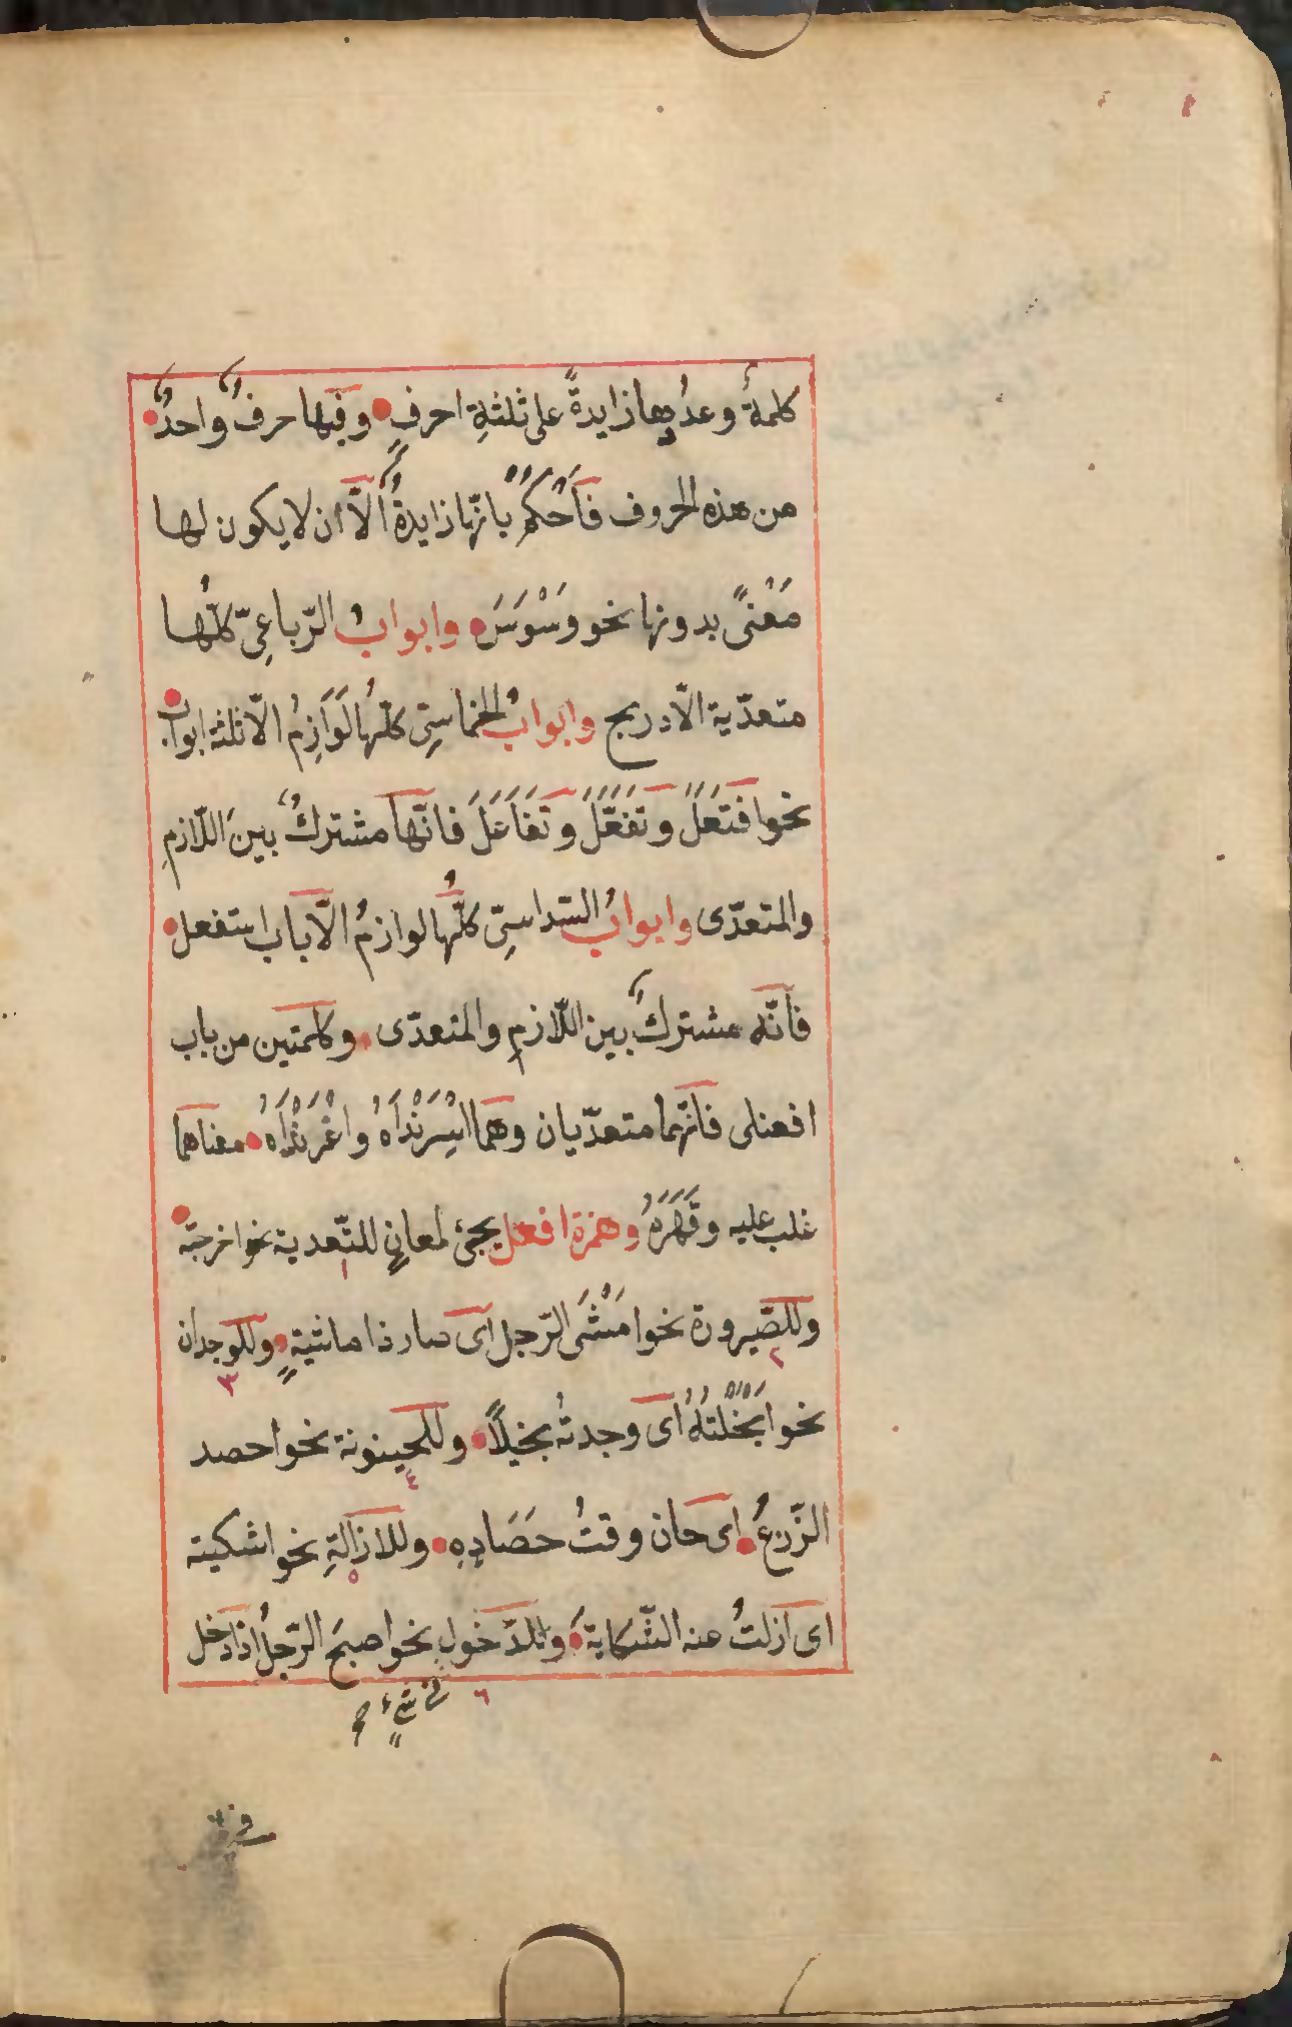 كلمةٌ وعددها زايدةً على ثلثةِ احرفٍ وفيها حرفٌ واحدٌ
من هذه الحروف فَاَحْكُمْ بانّها زايدةٌ اِلّا ان لا يكون لها
مَعْنىً بدونها نحو وَسْوَسَ وابوابُ الرّباعىِّ كلُّها
متعدّية الّا دربح وابوابُ الخماسىِّ كلّهُا لَوَازِمُ الّا ثلثة ابواب
نحو افتَعَلَ وتَفَعَّلَ وتَفَاعَلَ فانّها مشتركٌ بينَ اللّازمِ
والمتعدّى وابوابُ السّداسىِّ كلُّها لوازمُ الّا باب استفعل
فانّه مشتركٌ بين اللّازمِ والمتعدّى وكلمتين من باب
افعنلى فانّهما متعدّيان وهما اسْرَنْدَاهُ واغْرَنْدَاهُ معناهما
غلب عليه وقَهَرَهُ وهمزة افعل يجئ لمعانٍ للتّعدية نحو اخرجته
وللصّيرورة نحو امْشَى الرّجل اى صار ذا ماشيةٍ وللوجدان
نحو ابْخَلْتُهُ اى وجدتُه بخيلًا وللحينونة نحو احصد
الزّرعُ اى حان وقتُ حَصَادِهِ وللازالةِ نحو اشكيته
اى ازلتُ عنه الشّكاية وللدّخول نحو اصبحَ الرّجلُ اذا دخل
فى شىءٍ